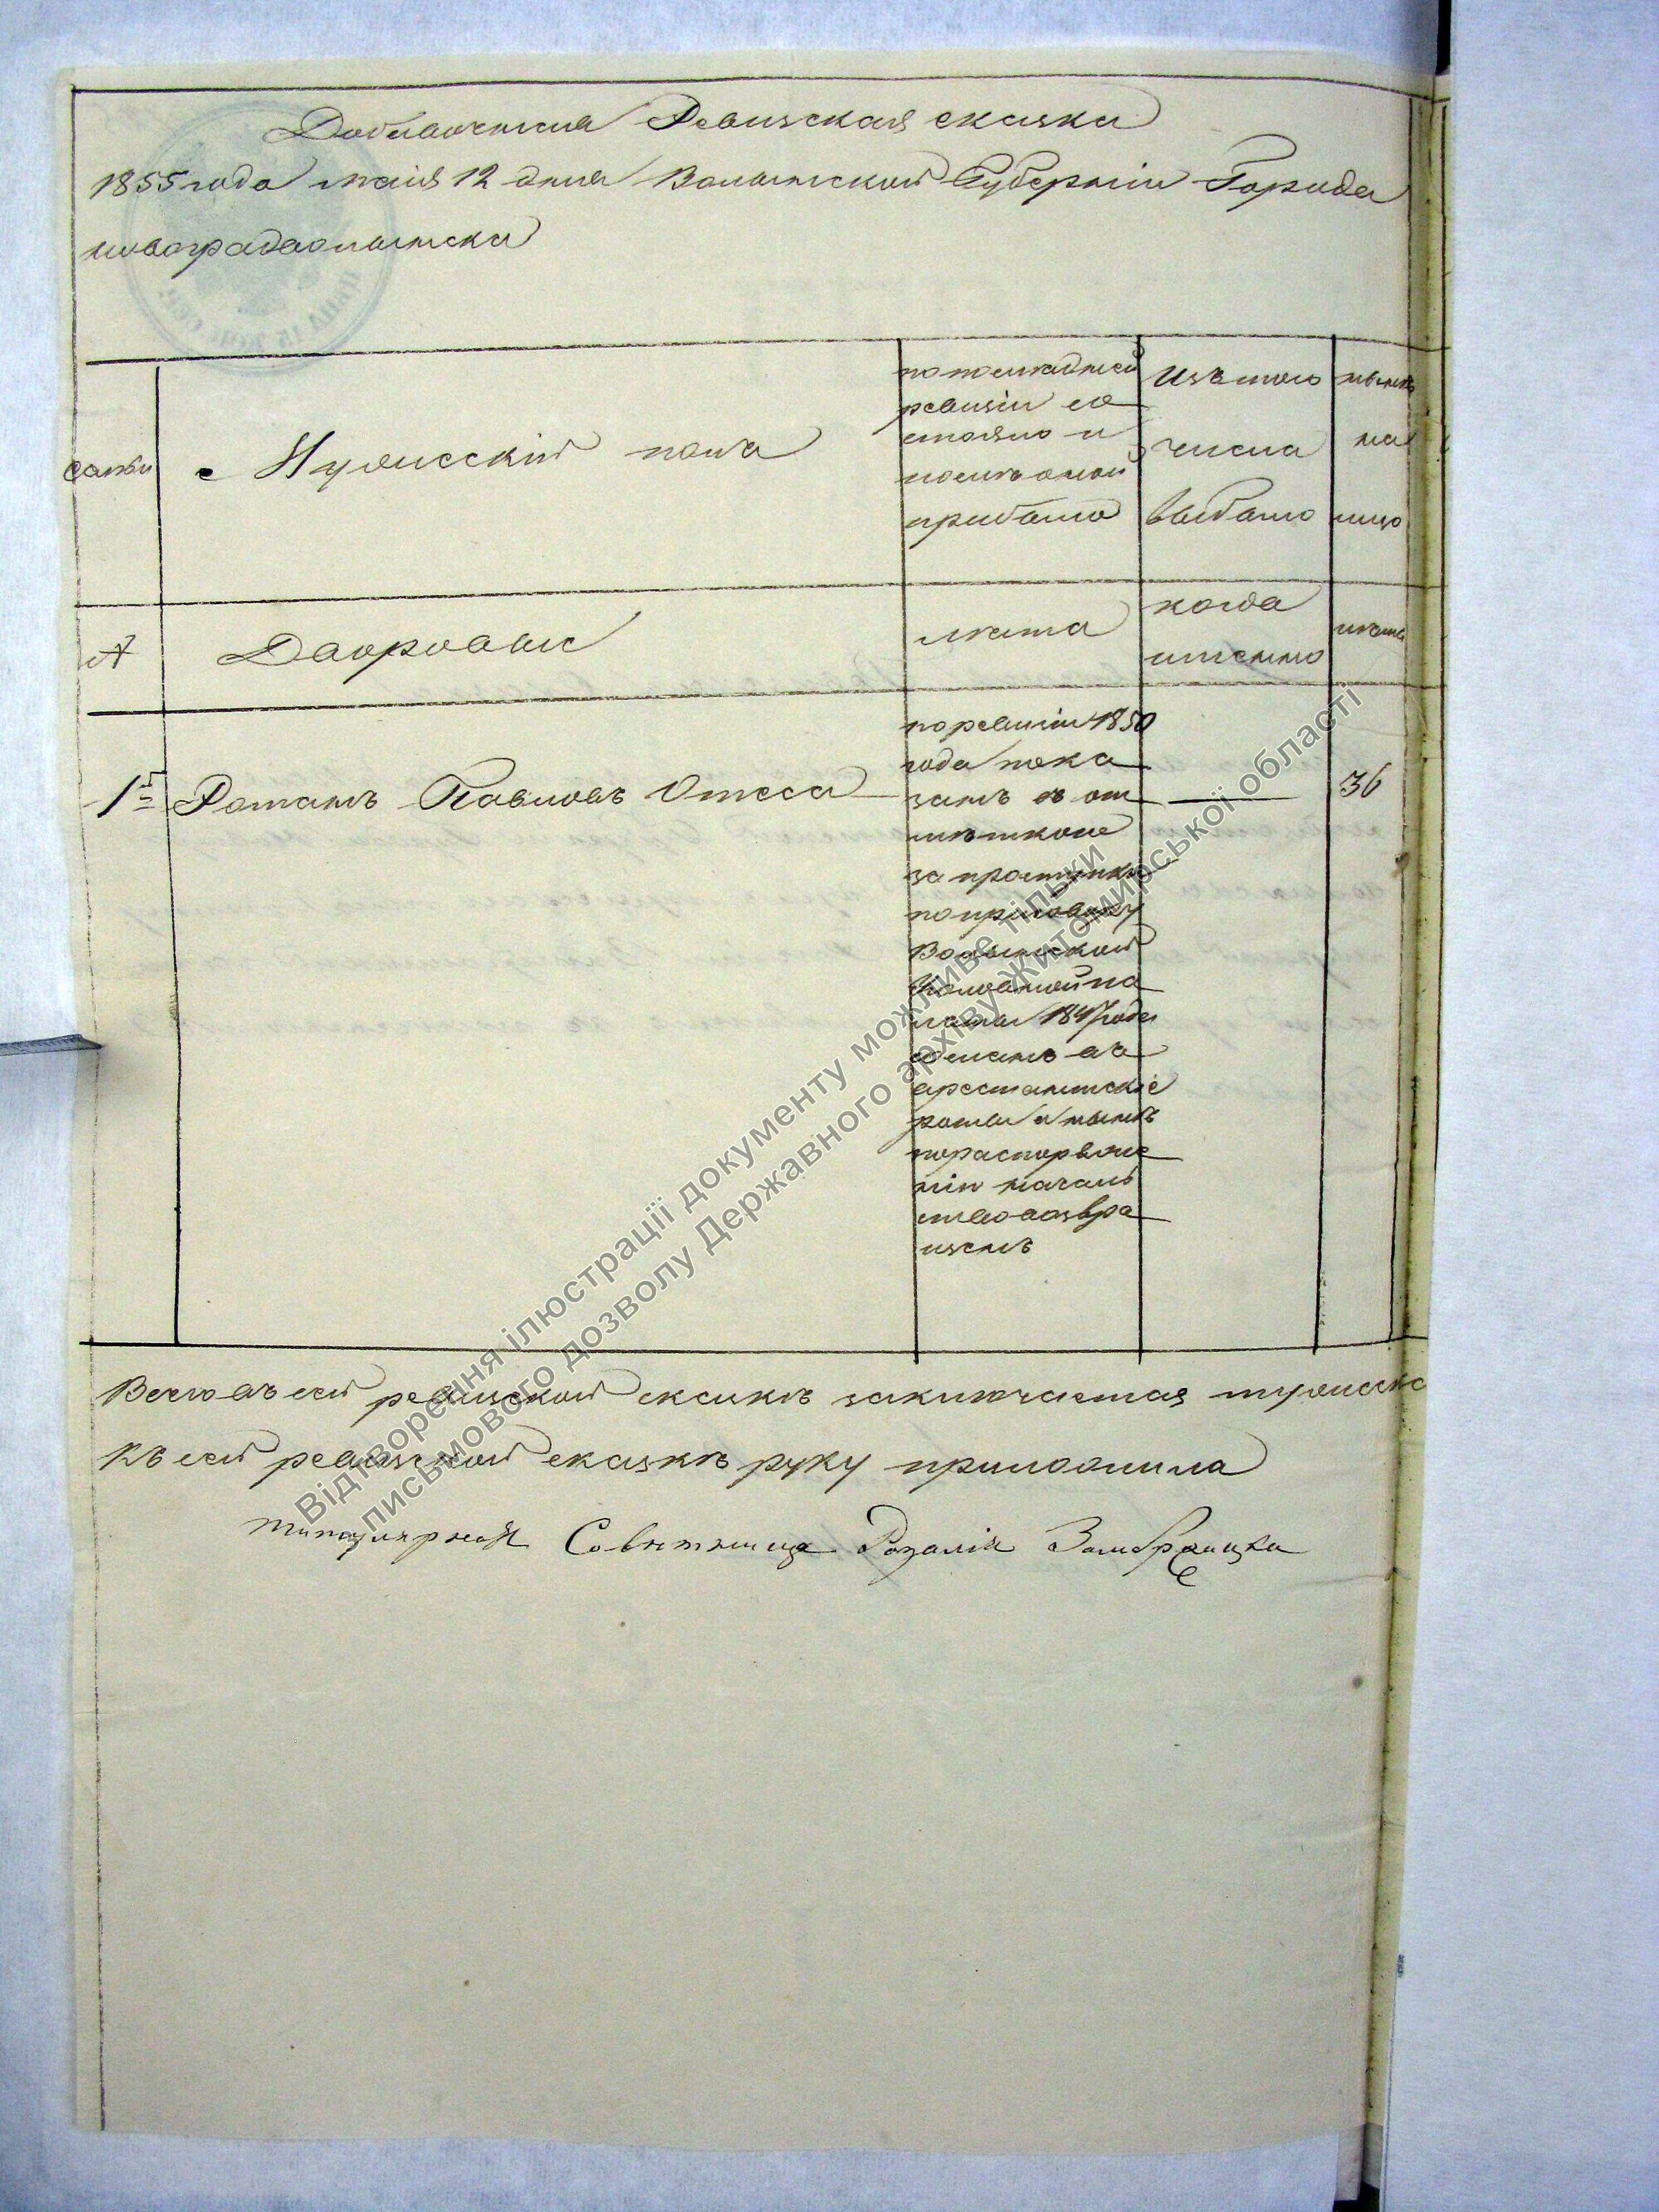 Добавочная Ревизская сказка
1855 года маія 12 дня Волынской Губерніи Города
новоградволынска
семьи
Мужескій полъ
по последней
ревизіи со
стояло и
после оной
прибыло
Изъ того
числа
выбыло
ныне
на
лицо
№
Дворовые
лета
когда
именно
лета
1й
Романъ Павловъ Отеса
по ревизіи 1850
года пока
занъ въ от
метке
за проступки
по приговору
Волынской
Уголовной па
латы 1847 года
отданъ въ
арестантскіе
роты а ныне
по распоряже
нію началь
ства возвра
щенъ
36
Всего въ сей ревизской сказкѣ заключается мужеска
Къ сей ревизской сказкѣ руку приложила
титулярная Совѣтница Розалія
Відтворення ілюстрації документу можливе тільки
письмового дозволу Державного архіву Житомирської області